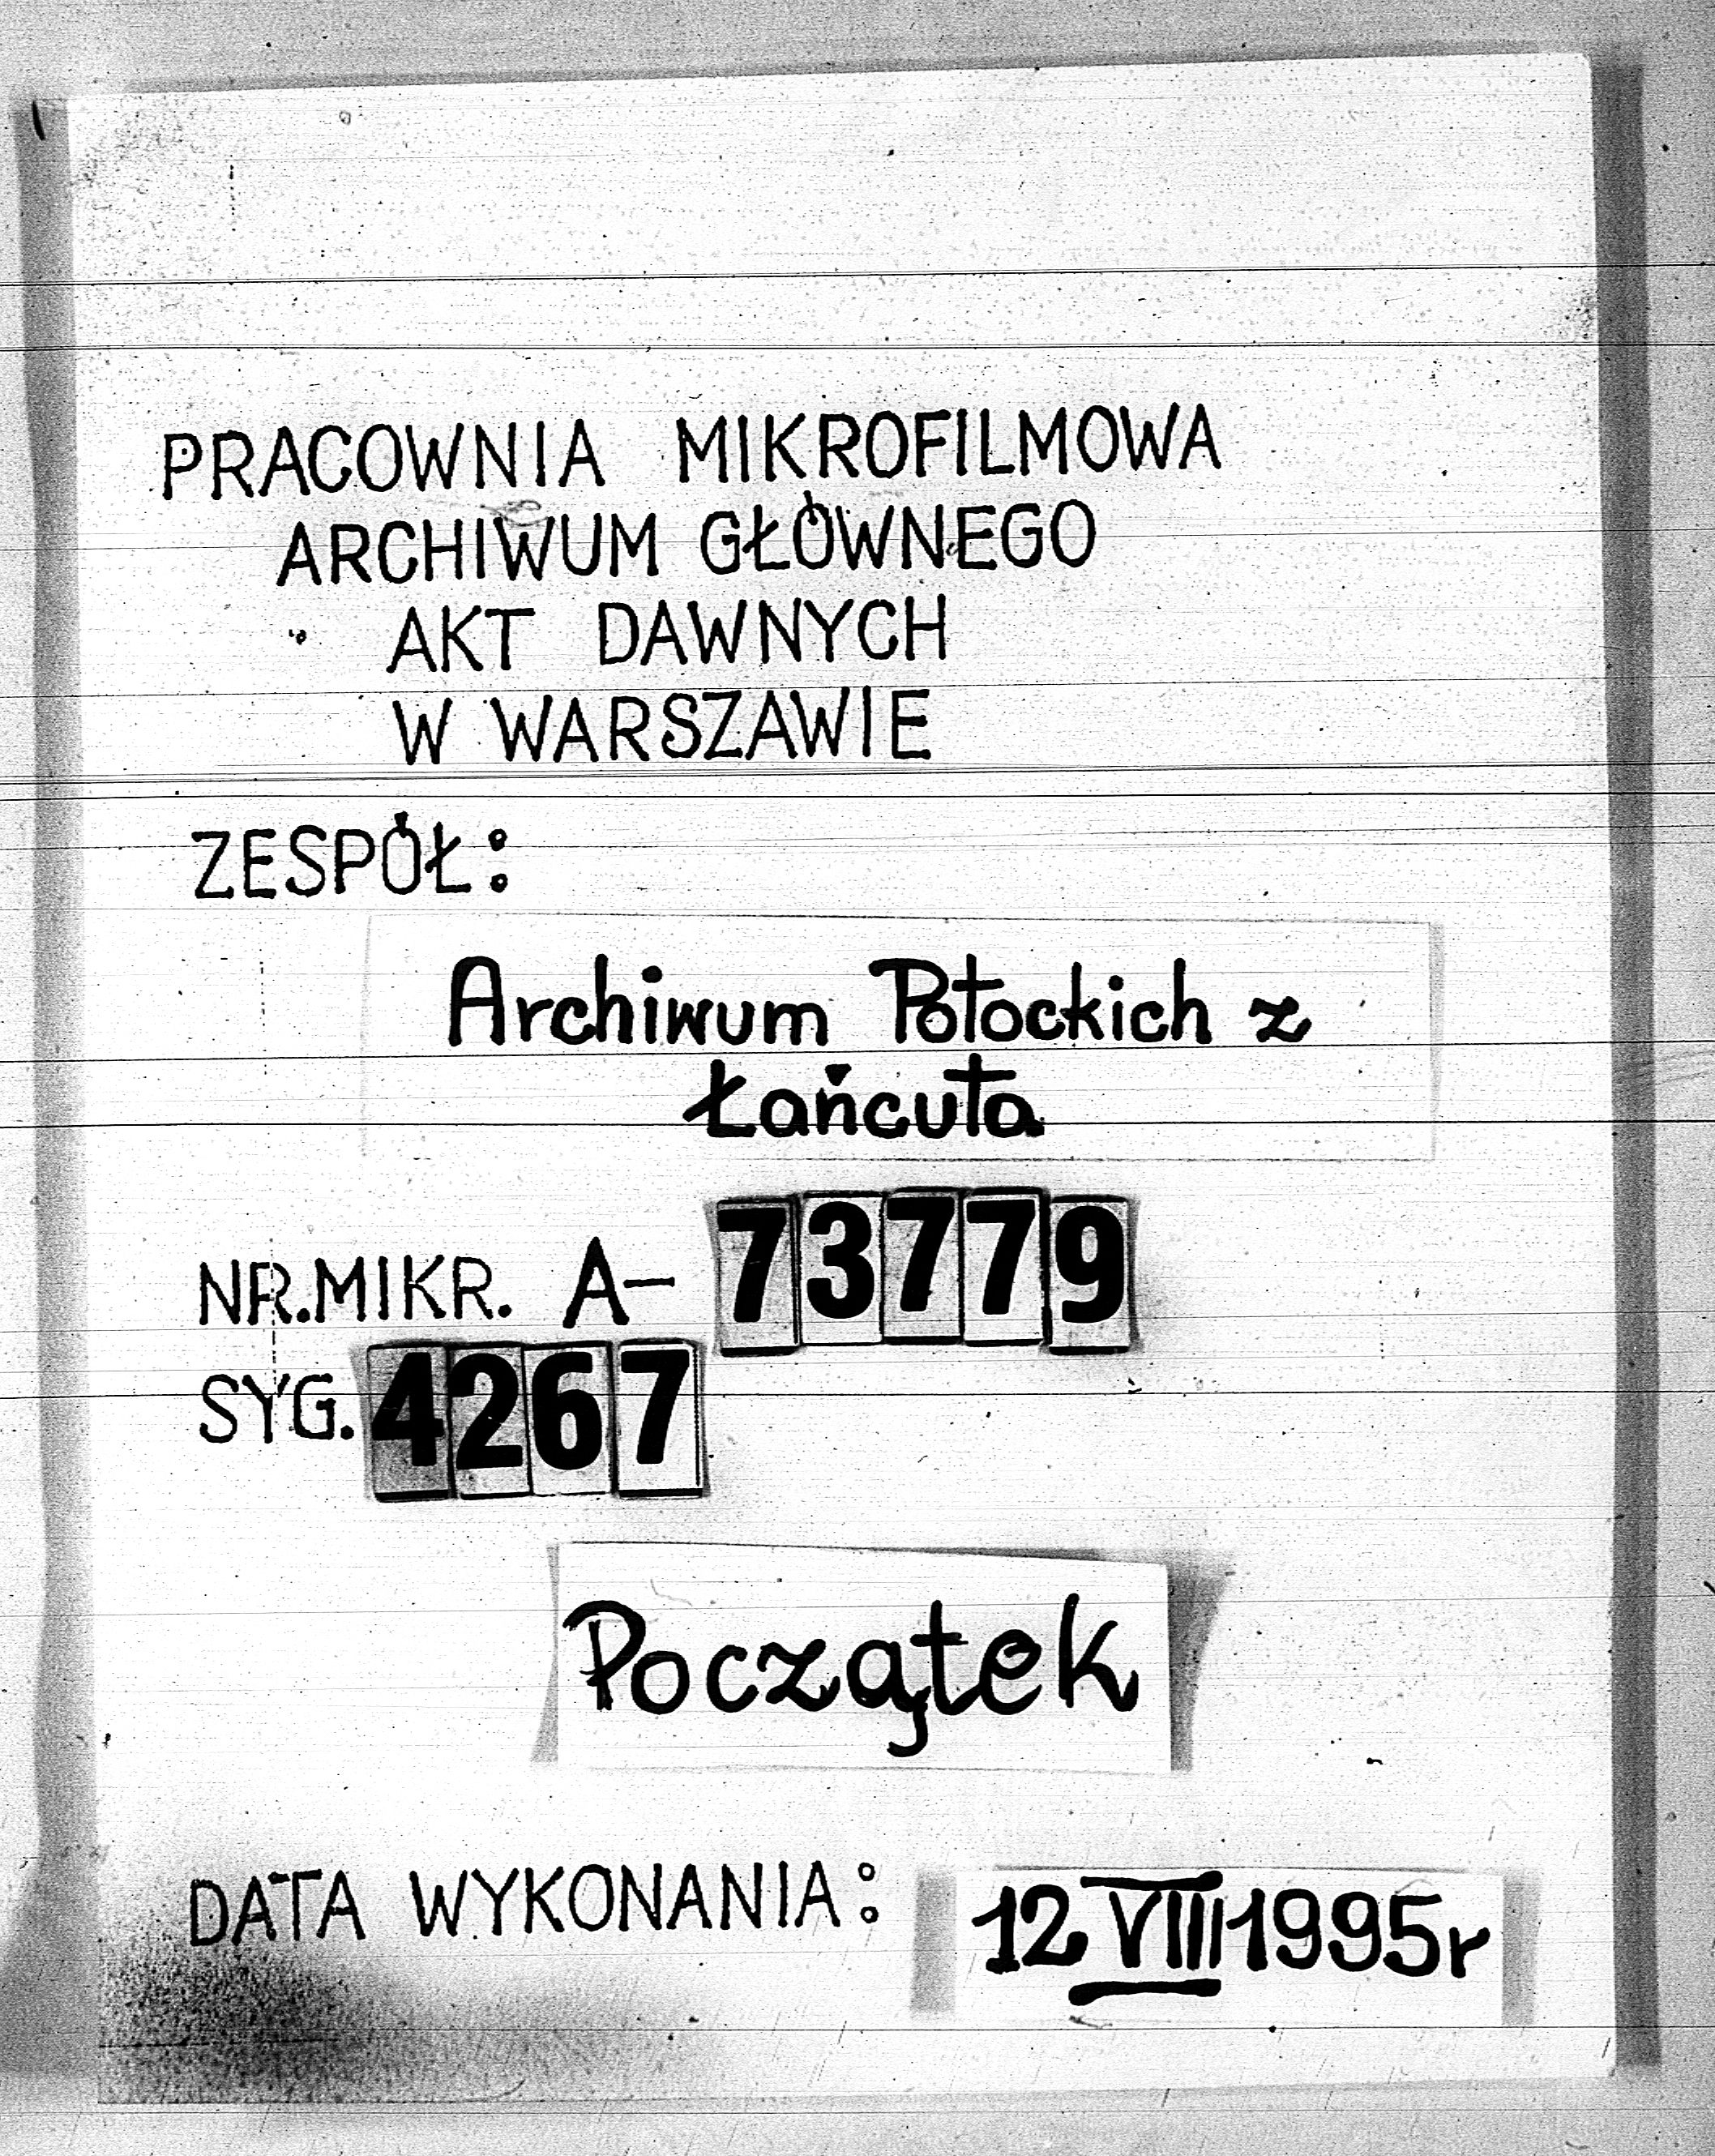 PRACOWNIA MIKROFILMOWA
ARCHIWUM GŁÓWNEGO
AKT DAWNYCH
W WARSZAWIE
ZESPÓŁ:
Archiwum Potockich z
Łańcuta
NR.MIKR. A- 73779
SYG. 4267
Początek
DATA WYKONANIA: 12 VIII 1995r